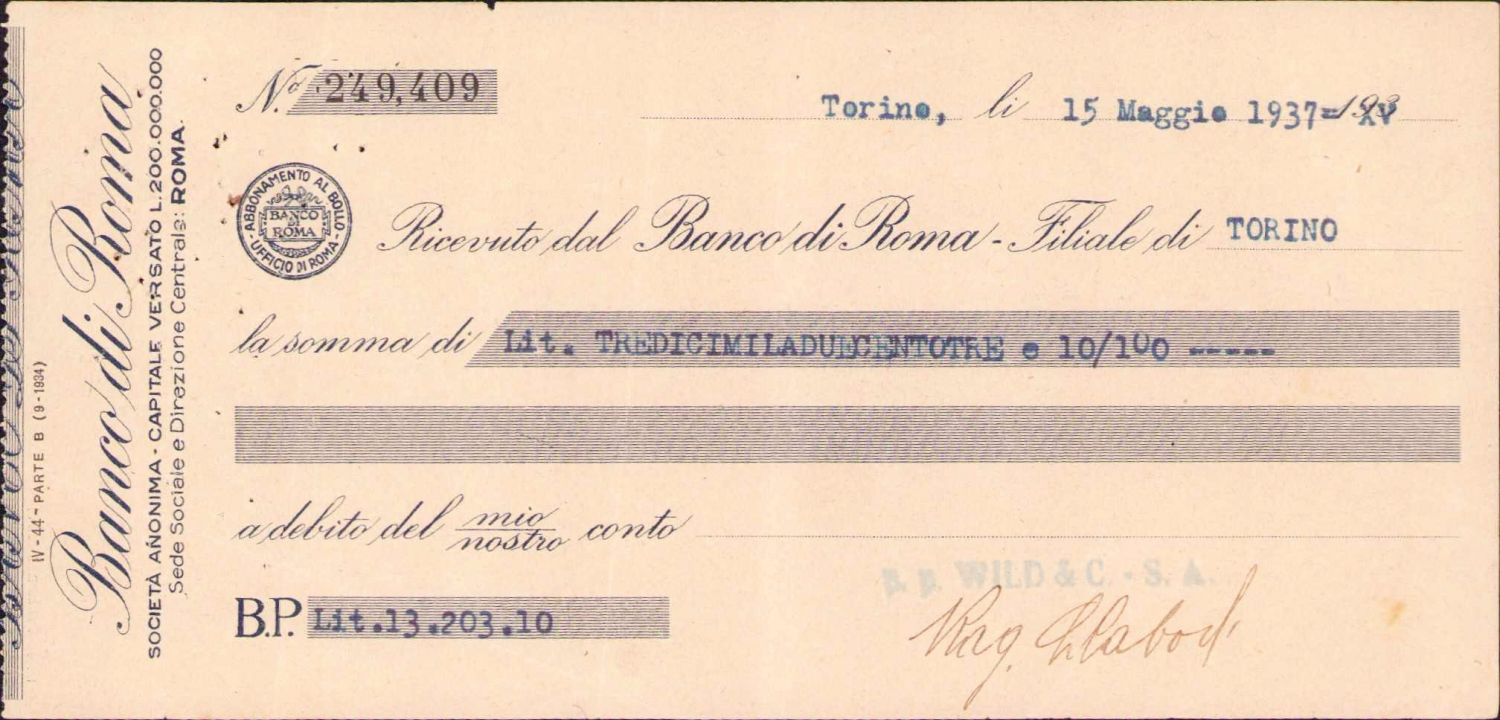 IV-44-PARTE B (9-1934)
Banco di Roma
SOCIETÀ ANONIMA - CAPITALE VERSATO L.200.000.000
Sede Sociale e Direzione Centrale: ROMA.
N.º 249,409
Torino, li 15 Maggio 1937=XV 193
ABBONAMENTO AL BOLLO
BANCO
DI
ROMA
UFFICIO DI ROMA
Ricevuto dal Banco di Roma - Filiale di TORINO
la somma di Lit. TREDICIMILADUECENTOTRE e 10/100 -----
a debito del mio/nostro conto
WILD & C. - S. A.
B.P. Lit.13.203.10
Rag.